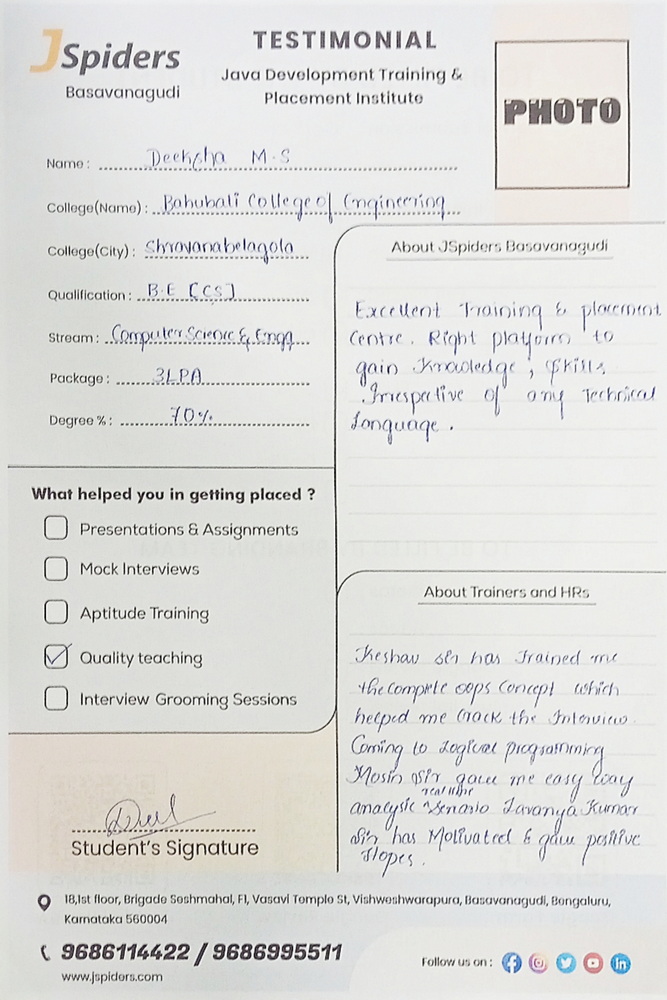 JSpiders
Basavanagudi
TESTIMONIAL
Java Development Training &
Placement Institute
PHOTO
Name : Deeksha M.S
College(Name) : Bahubali College of Engineering
College(City) : Shravanabelagola
Qualification : B.E [CS]
Stream : Computer Science & Engg
Package : 3LPA
Degree % : 70%
What helped you in getting placed ?
Presentations & Assignments
Mock Interviews
Aptitude Training
Quality teaching
Interview Grooming Sessions
Student's Signature
About JSpiders Basavanagudi
Excellent Training & placement
Centre. Right platform to
gain Knowledge, Skills
.Irrespective of any Technical
Language.
About Trainers and HRs
Keshav sir has Trained me
the complete oops concept which
helped me Crack the Interview
Coming to Logical programming
Mosin sir gave me easy way
real time
analysis Senario Lavanya Kumar
sir has Motivated & gave positive
Hopes.
18,1st floor, Brigade Seshmahal, F1, Vasavi Temple St, Vishweshwarapura, Basavanagudi, Bengaluru,
Karnataka 560004
9686114422 / 9686995511
www.jspiders.com
Follow us on :